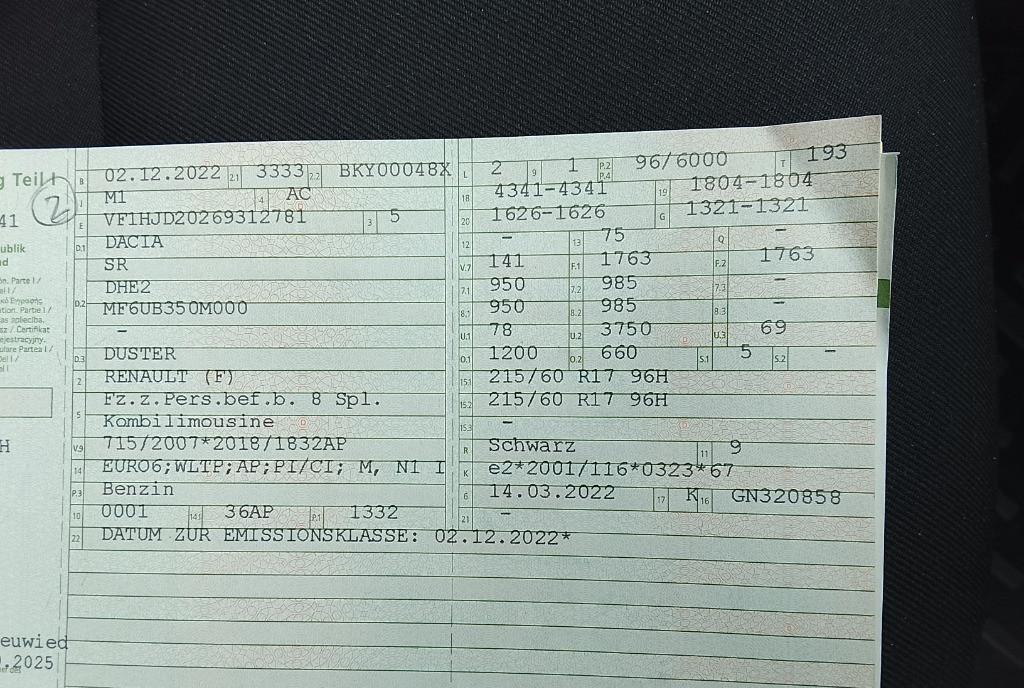 g Teil I
2
41
ublik
nd
B 02.12.2022 2.1 3333 2.2 BKY00048X
J M1 4 AC
E VF1HJD20269312781 3 5
D.1 DACIA
SR
DHE2
D.2 MF6UB350M000
–
D.3 DUSTER
2 RENAULT (F)
Fz.z.Pers.bef.b. 8 Spl.
5 Kombilimousine
V.9 715/2007*2018/1832AP
14 EURO6;WLTP;AP;PI/CI; M, N1 I
P.3 Benzin
10 0001 14.1 36AP P.1 1332
22 DATUM ZUR EMISSIONSKLASSE: 02.12.2022*
L 2 9 1 P.2 P.4 96/6000 T 193
18 4341-4341 19 1804-1804
20 1626-1626 G 1321-1321
12 – 13 75 Q –
V.7 141 F.1 1763 F.2 1763
7.1 950 7.2 985 7.3 –
8.1 950 8.2 985 8.3 –
U.1 78 U.2 3750 U.3 69
O.1 1200 O.2 660 S.1 5 S.2 –
15.1 215/60 R17 96H
15.2 215/60 R17 96H
15.3 –
R Schwarz 11 9
K e2*2001/116*0323*67
6 14.03.2022 17 K 16 GN320858
21 –
H
euwied
.2025